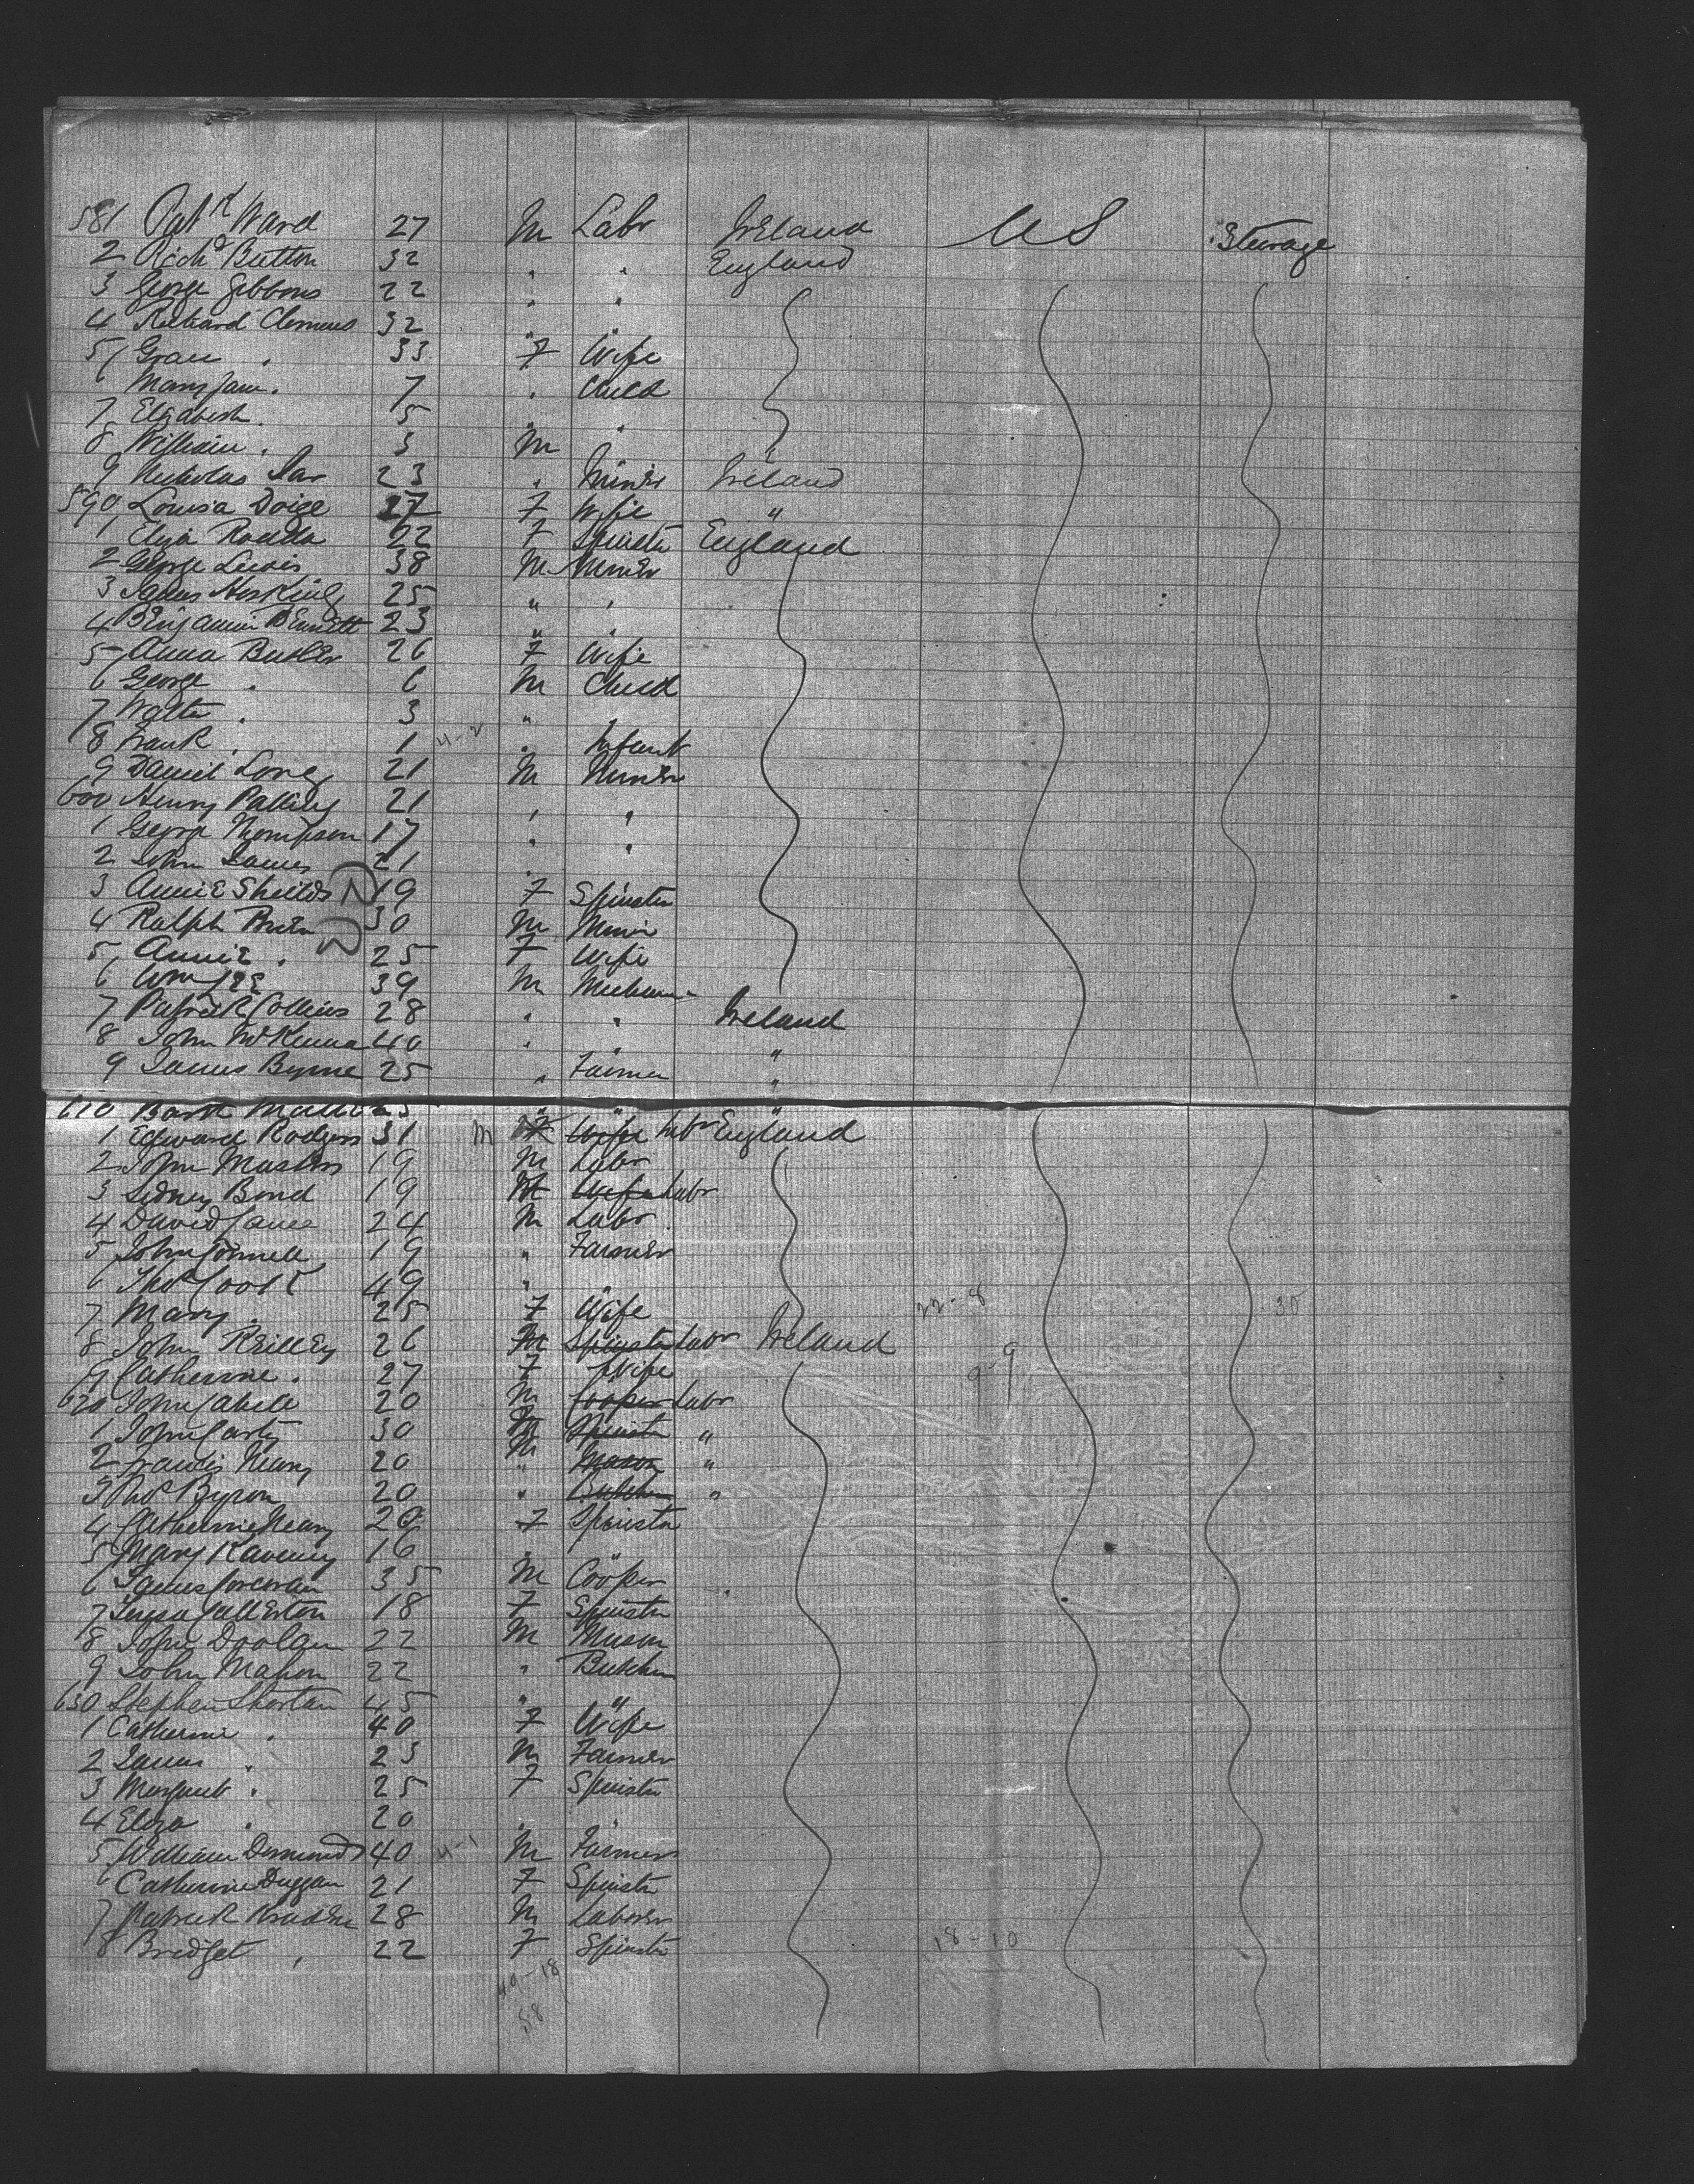 581 Patk Ward 27 M Labr Ireland US Steerage
2 Richd Button 32 " " England
3 George Gibbons 22 " "
4 Richard Clemens 32 " "
5 Grace " 33 F Wife
6 Mary Jane " 7 " Child
7 Elizabeth " 5 " "
8 William " 3 M
9 Nicholas 23 " Miner Ireland
590 Louisa Doige 27 F Wife "
1 Eliza Rodda 22 F Spinster England
2 George Lewis 38 M Miner
3 James Hosking 25 " "
4 Benjamin Bennett 23 " "
5 Anna Butler 26 F Wife
6 George " 6 M Child
7 Walter " 3 "
8 Frank " 1 4-2 " Infant
9 Daniel Long 21 M Miner
600 Henry Palling 21 " "
1 George Thompson 17 " "
2 John James 21 "
3 Annie Shields 19 F Spinster
4 Ralph 30 M Miner
5 Annie " 25 F Wife
6 Wm Lee 39 M Mechanic
7 Patrick Collins 28 " " Ireland
8 John McKenna 40 " " "
9 James Byrne 25 " Farmer "
610 " " "
1 Edward Rodgers 31 M Wife Labr England
2 John Masters 19 M Labr
3 Sidney Bond 19 M Wife Labr
4 David James 24 M Labr
5 John Connell 19 " Farmer
6 Thos Cook 49 " "
7 Mary " 25 F Wife 22-8 30
8 John Reilley 26 M Spinster Labr Ireland
9 Catherine " 27 F Wife 9-9
620 John Cahill 20 M Cooper Labr
1 John Carty 30 M Spinster "
2 Francis Neary 20 M Mason "
3 Thos Byron 20 " Butcher "
4 Catherine Neary 20 F Spinster
5 Mary Kaveney 16 " "
6 James Corcoran 35 M Cooper
7 Teresa Callerton 18 F Spinster
8 John Doolan 22 M Mason
9 John Mahon 22 " Butcher
630 Stephen Shortan 45 " "
1 Catherine " 40 F Wife
2 James " 23 M Farmer
3 Margaret " 25 F Spinster
4 Eliza " 20 " "
5 William Desmond 40 4-1 M Farmer
6 Catherine Duggan 21 F Spinster
7 Patrick 28 M Laborer
8 Bridget " 22 F Spinster 18-10
40-18
58